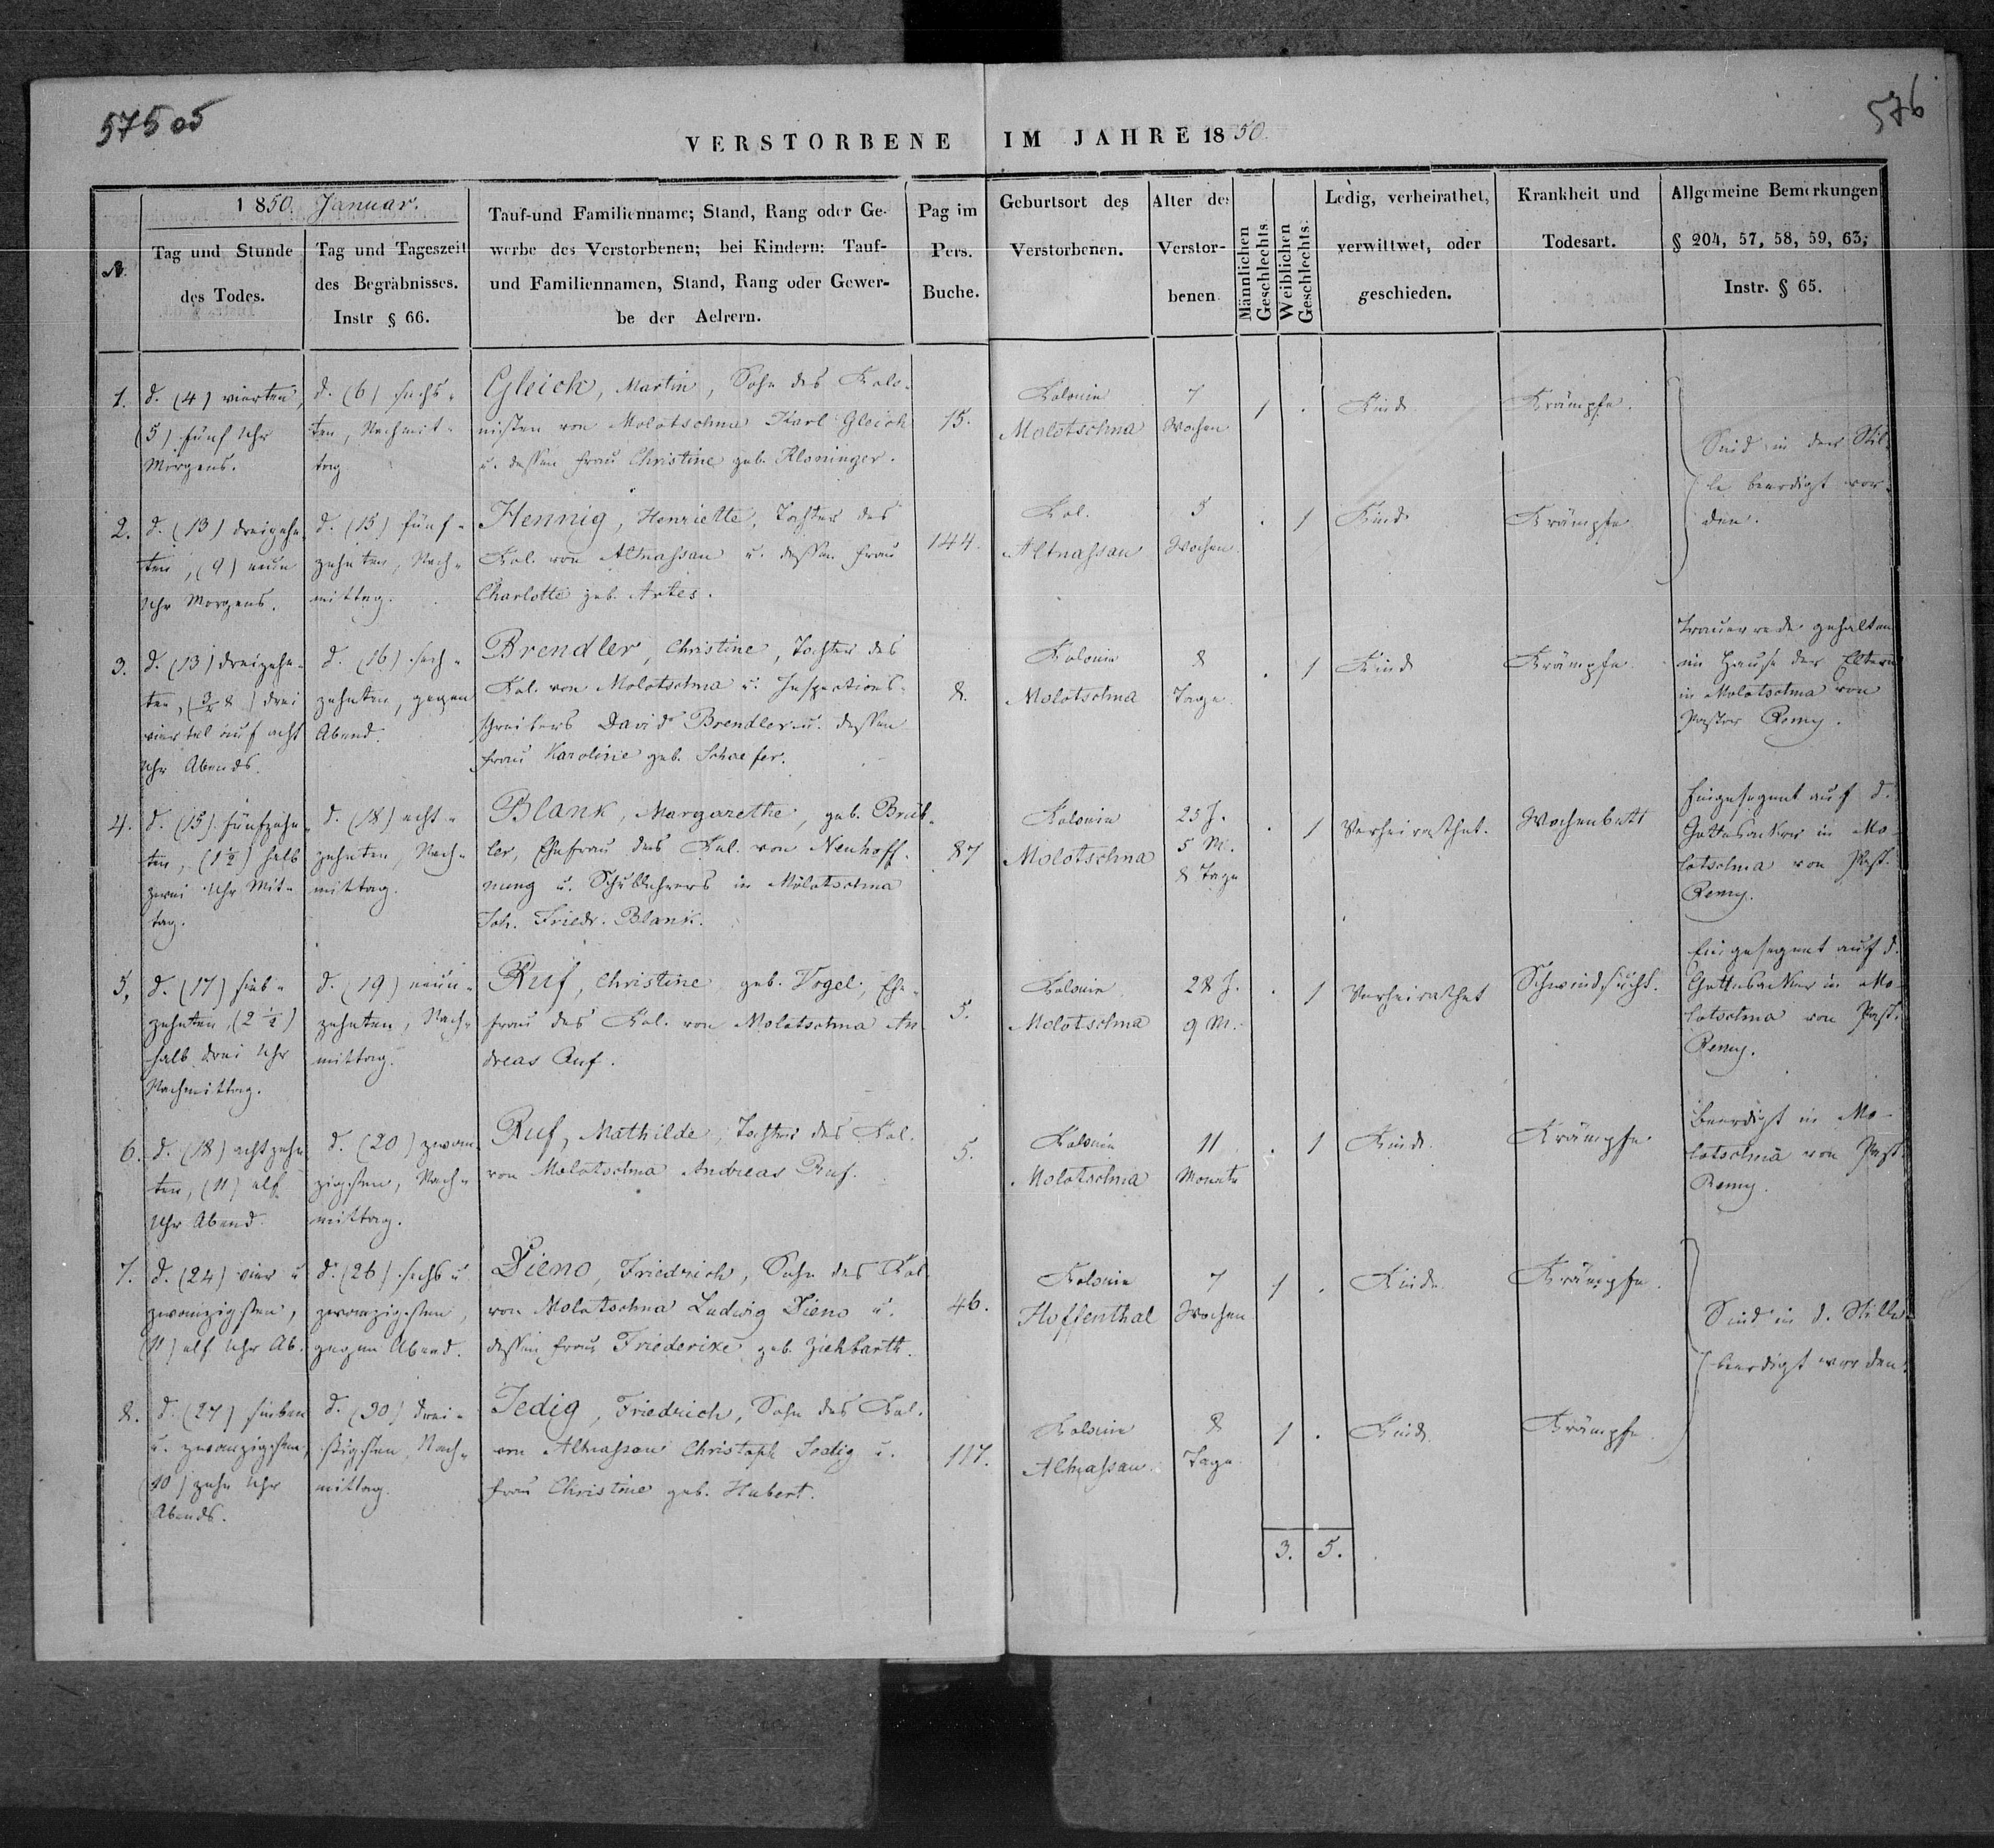 575 05
576
VERSTORBENE IM JAHRE 1850.
№
1850. Januar.
Tag und Stunde
des Todes.
Tag und Tageszeit
des Begräbnisses.
Instr § 66.
Tauf-und Familienname; Stand, Rang oder Ge-
werbe des Verstorbenen; bei Kindern: Tauf-
und Familiennamen, Stand, Rang oder Gewer-
be der Aelrern.
Pag im
Pers.
Buche.
Geburtsort des
Verstorbenen.
Alter des
Verstor-
benen.
Männlichen
Geschlechts
Weiblichen
Geschlechts.
Ledig, verheirathet,
verwittwet, oder
geschieden.
Krankheit und
Todesart.
Allgemeine Bemerkungen
§ 204, 57, 58, 59, 63;
Instr. § 65.
1.
d. (4) vierten,
(5) fünf Uhr
Morgens.
d. (6) sechs-
ten, Nachmit-
tag
Gleich, Martin, Sohn des Kolo-
nisten von Molotschna Karl Gleich
u. dessen Frau Christine geb. Kloninger.
15.
Kolonie
Molotschna
7
Wochen
1
.
Kind
Krämpfe.
Sind in der Stil-
le beerdigt wor-
den.
2.
d. (13) dreizehn-
ten, (9) neun
Uhr Morgens.
d. (15) fünf-
zehnten, Nach-
mittag.
Hennig, Henriette, Tochter des
Kol. von Altnassau u. dessen Frau
Charlotte geb. Artes.
144.
Kol.
Altnassau
5
Wochen.
.
1
Kind
Krämpfe
3.
d. (13) dreizehn-
ten, (¾ 8) drei
viertel auf acht
Uhr Abends.
d. (16) sech-
zehnten, gegen
Abend.
Brendler, Christine, Tochter des
Kol. von Molotschna u. Inspections-
schreibers David Brendler u. dessen
Frau Karoline geb. Schaefer.
8.
Kolonie
Molotschna
8
Tage
.
1
Kind
Krämpfe.
Trauerrede gehalten
im Hause der Eltern
in Molotschna von
Pastor Remy.
4.
d. (15) fünfzehn-
ten, (1½) halb
zwei Uhr Mit-
tag.
d. (18) acht-
zehnten, Nach-
mittag.
Blank, Margarethe, geb. Brüb-
ler, Ehefrau des Kol. von Neuhoff-
nung u. Schullehrers in Molotschna
Joh. Friedr. Blank.
87
Kolonie
Molotschna
25 J.
5 M.
8 Tage
.
1
Verheirathet.
Wochenbett
Eingesegnet auf d.
Gottesacker in Mo-
lotschna von Past.
Remy.
5.
d. (17) sieb-
zehnten, (2½)
halb drei Uhr
Nachmittag.
d. (19) neun-
zehnten, Nach-
mittag.
Ruf, Christine geb. Vogel, Ehe-
frau des Kol. von Molotschna An-
dreas Ruf.
5.
Kolonie
Molotschna
28 J.
9 M.
.
1
Verheirathet
Schwindsucht.
Eingesegnet auf d.
Gottesacker in Mo-
lotschna von Past.
Remy.
6.
d. (18) achtzehn-
ten, (11) elf
Uhr Abend.
d. (20) zwan-
zigsten, Nach-
mittag.
Ruf, Mathilde, Tochter des Kol.
von Molotschna Andreas Ruf.
5.
Kolonie
Molotschna
11
Monate
.
1
Kind.
Krämpfe
Beerdigt in Mo-
lotschna von Past.
Remy.
7.
d. (24) vier u
zwanzigsten,
(11) elf Uhr Ab.
d. (26) sechs u
zwanzigsten,
gegen Abend.
Dieno, Friedrich, Sohn des Kol.
von Molotschna Ludwig Dieno u.
dessen Frau Friederike geb. Ziehbarth.
46.
Kolonie
Hoffenthal
7
Wochen
1
.
Kind.
Krämpfe.
Sind in d. Stille
beerdigt worden.
8.
d. (27) sieben
u. zwanzigsten,
(10) zehn Uhr
Abends.
d. (30) drei-
ßigsten, Nach-
mittag.
Jedig, Friedrich, Sohn des Kol.
von Altnassau Christoph Jedig u.
Frau Christine geb. Hubert.
117.
Kolonie
Altnassau.
8
Tage
1
.
Kind.
Krämpfe.
3. 5.